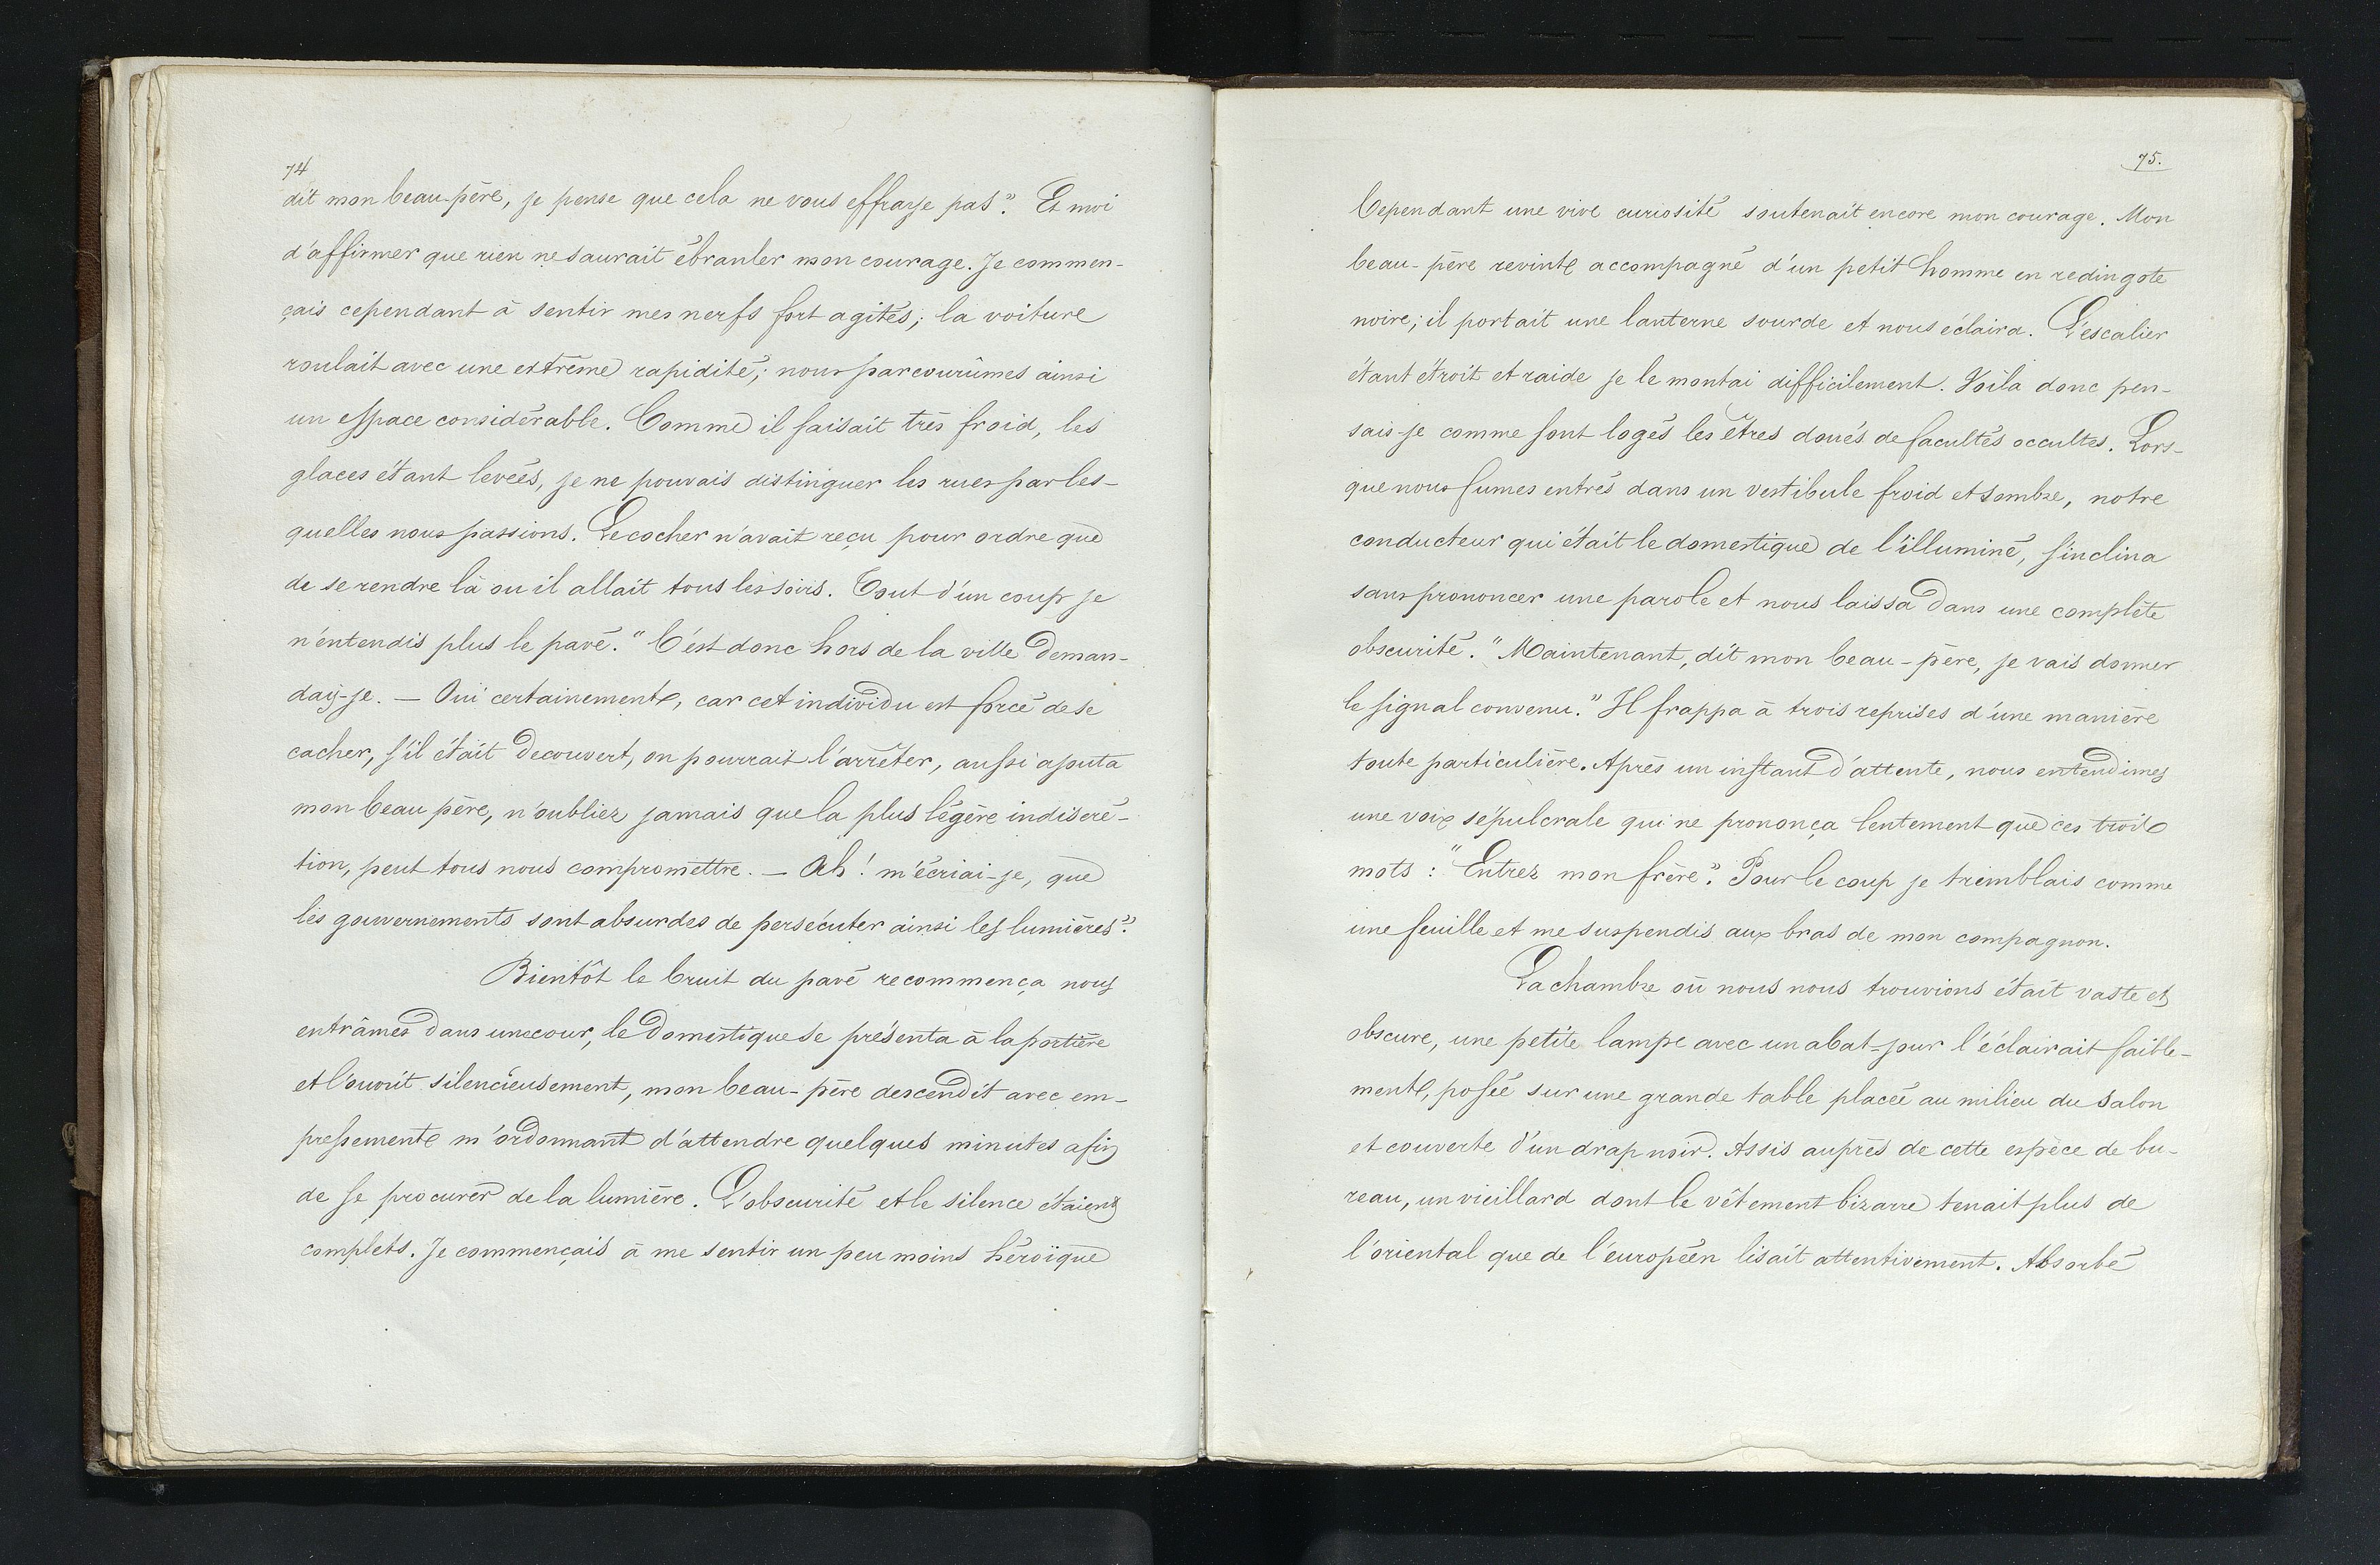 74
dit mon beau-père, je pense que cela ne vous effraye pas". Et moi
d'affirmer que rien ne saurait ébranler mon courage. Je commen-
çais cependant à sentir mes nerfs fort agités; la voiture
roulait avec une extrême rapidité; nous parcourûmes ainsi
un espace considérable. Comme il faisait très froid, les
glaces étant levées, je ne pouvais distinguer les rues par les-
quelles nous passions. Le cocher n'avait reçu pour ordre que
de se rendre là ou il allait tous les soirs. Tout d'un coup je
n'entendis plus le pavé. "C'est donc hors de la ville deman-
dais-je. — Oui certainement, car cet individu est forcé de se
cacher, s'il était decouvert, on pourrait l'arrêter, aussi ajouta
mon beau père, n'oubliez jamais que la plus légère indiscré-
tion, peut tous nous compromettre. — Ah! m'écriai-je, que
les gouvernements sont absurdes de persécuter ainsi les lumières".
Bientôt le bruit du pavé recommença nous
entrâmes dans une cour, le domestique se présenta à la portière
et l'ouvrit silencieusement, mon beau-père descendit avec em-
pressement m'ordonnant d'attendre quelques minutes afin
de se procurer de la lumière. L'obscurité et le silence étaient
complets. Je commençais à me sentir un peu moins héroïque
75.
Cependant une vive curiosité soutenait encore mon courage. Mon
beau-père revint accompagné d'un petit homme en redingote
noire; il portait une lanterne sourde et nous éclaira. L'escalier
étant étroit et raide je le montai difficilement. Voila donc pen-
sais-je comme sont logés les êtres doués de facultés occultes. Lors-
que nous fumes entrés dans un vestibule froid et sombre, notre
conducteur qui était le domestique de l'illuminé, s'inclina
sans prononcer une parole et nous laissa dans une complète
obscurité. "Maintenant, dit mon beau-père, je vais donner
le signal convenu." Il frappa à trois reprises d'une manière
toute particulière. Après un instant d'attente, nous entendimes
une voix sépulcrale qui ne prononça lentement que ces trois
mots: "Entrez mon frère". Pour le coup je tremblais comme
une feuille et me suspendis aux bras de mon compagnon.
La chambre où nous nous trouvions était vaste et
obscure, une petite lampe avec un abat-jour l'éclairait faible-
ment, posée sur une grande table placée au milieu du salon
et couverte d'un drap noir. Assis auprès de cette espèce de bu-
reau, un vieillard dont le vêtement bizarre tenait plus de
l'oriental que de l'européen lisait attentivement. Absorbé